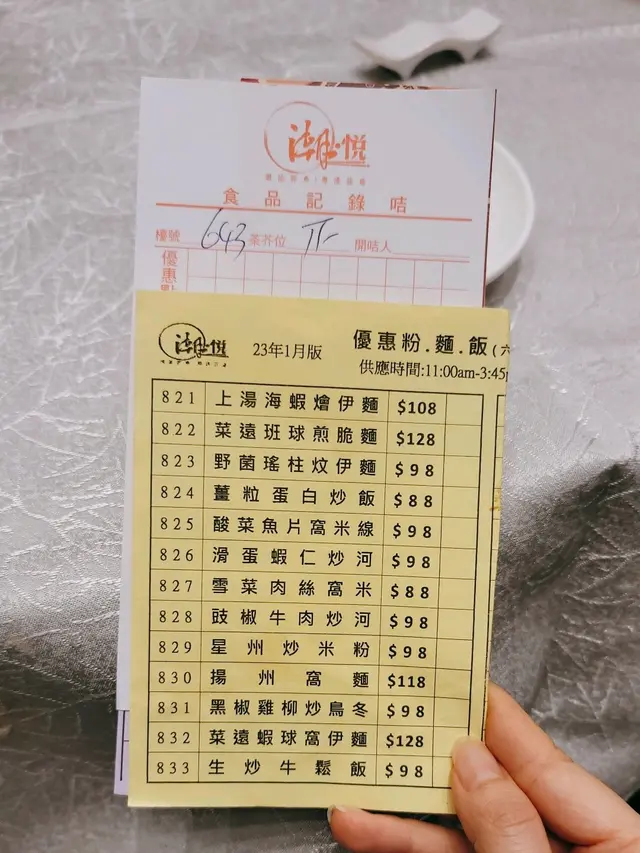 潮悦
食品記錄咭
檯號 643 茶芥位 開咭人
優惠
潮悦 23年1月版 優惠粉.麵.飯(六
供應時間:11:00am-3:45
821 上湯海蝦燴伊麵 $108
822 菜遠班球煎脆麵 $128
823 野菌瑤柱炆伊麵 $98
824 薑粒蛋白炒飯 $88
825 酸菜魚片窩米線 $98
826 滑蛋蝦仁炒河 $98
827 雪菜肉絲窩米 $88
828 豉椒牛肉炒河 $98
829 星州炒米粉 $98
830 揚州窩麵 $118
831 黑椒雞柳炒烏冬 $98
832 菜遠蝦球窩伊麵 $128
833 生炒牛鬆飯 $98